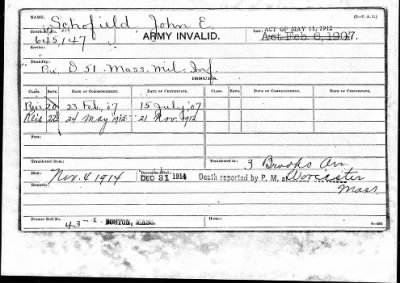 NAME: Schofield John E.
ARMY INVALID.
ACT OF MAY 11, 1912
Act Feb. 6, 1907.
645,147
Service:
Disability:
Pvt. D 51 Mass. Mil. Inf
ISSUES.
CLASS. RATE. DATE OF COMMENCEMENT. DATE OF CERTIFICATE. CLASS. RATE. DATE OF COMMENCEMENT. DATE OF CERTIFICATE.
Reis 20 23 Feb, '07 15 July '07
Reis 22 24 May 1912 21 Nov. 1912
Transferred from: Transferred to: 3 Brooks Av.
Died: Nov. 4 1914 DEC 31 1914 Death reported by P. M. at Worcester
Remarks: Mass
Former Roll No. 43 BOSTON, MASS. Home: